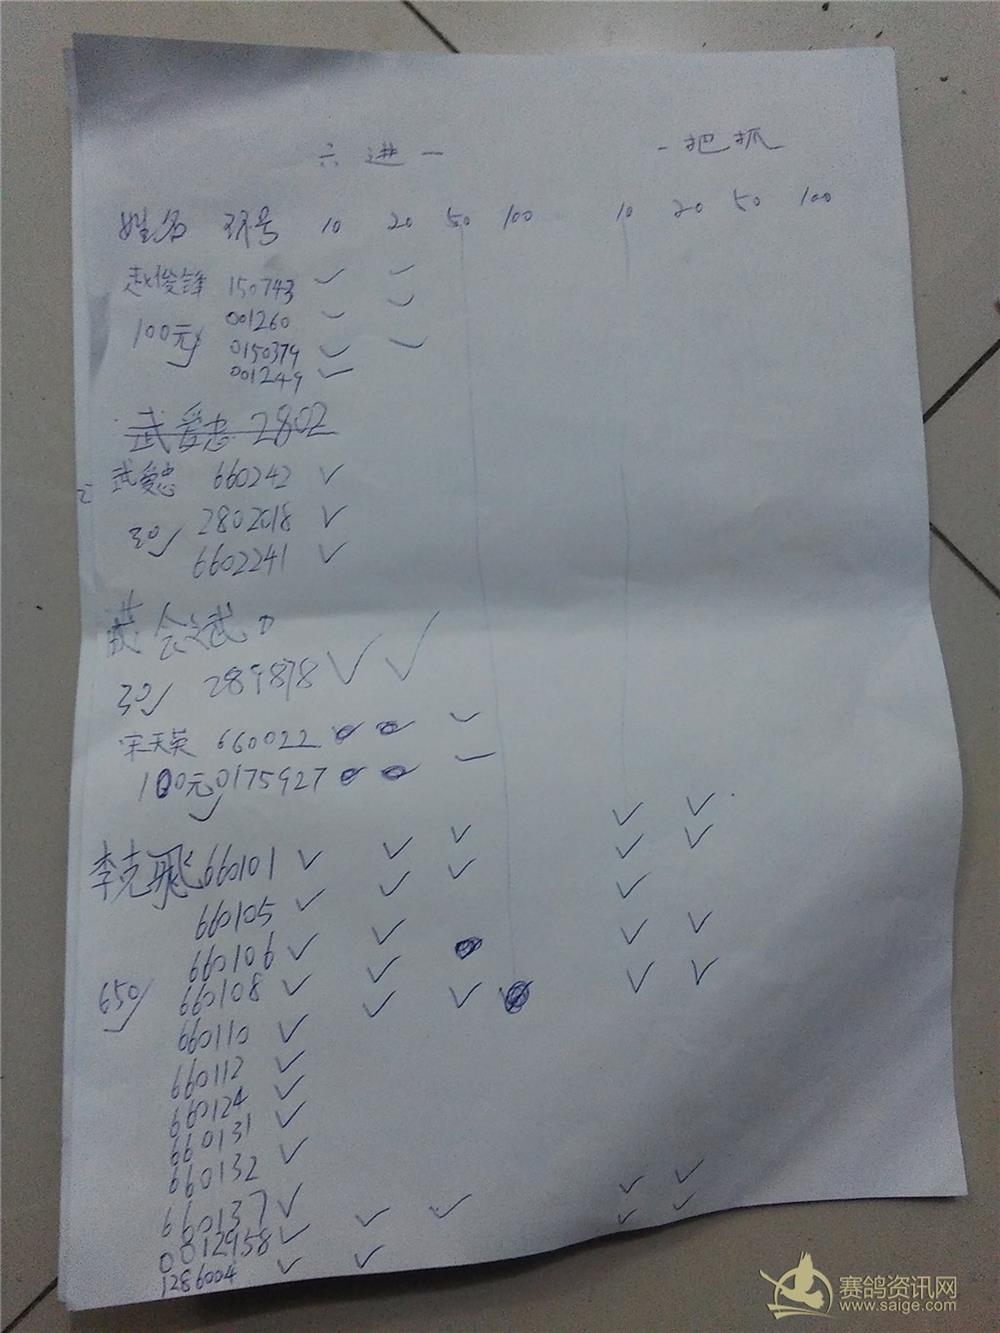 六进一 一把抓
姓名 环号 10 20 50 100 10 20 50 100
赵俊锋 150743 ✓ ✓
001260 ✓ ✓
100元 0150379 ✓ ✓
001249 ✓
武爱忠 2802
武爱忠 660242 ✓
30 2802018 ✓
6602241 ✓
武
30 289878 ✓ ✓
宋天英 660022 ✓
100元 0175927 ✓
李克飛 660101 ✓ ✓ ✓ ✓ ✓
660105 ✓ ✓ ✓ ✓ ✓
660106 ✓ ✓ ✓
650 660108 ✓ ✓ ✓ ✓
660110 ✓ ✓ ✓ ✓ ✓
660112 ✓
660124 ✓
660131 ✓
660132 ✓
660137 ✓
0012958 ✓ ✓ ✓ ✓ ✓
1286004 ✓ ✓ ✓ ✓
赛鸽资讯网
www.saige.com